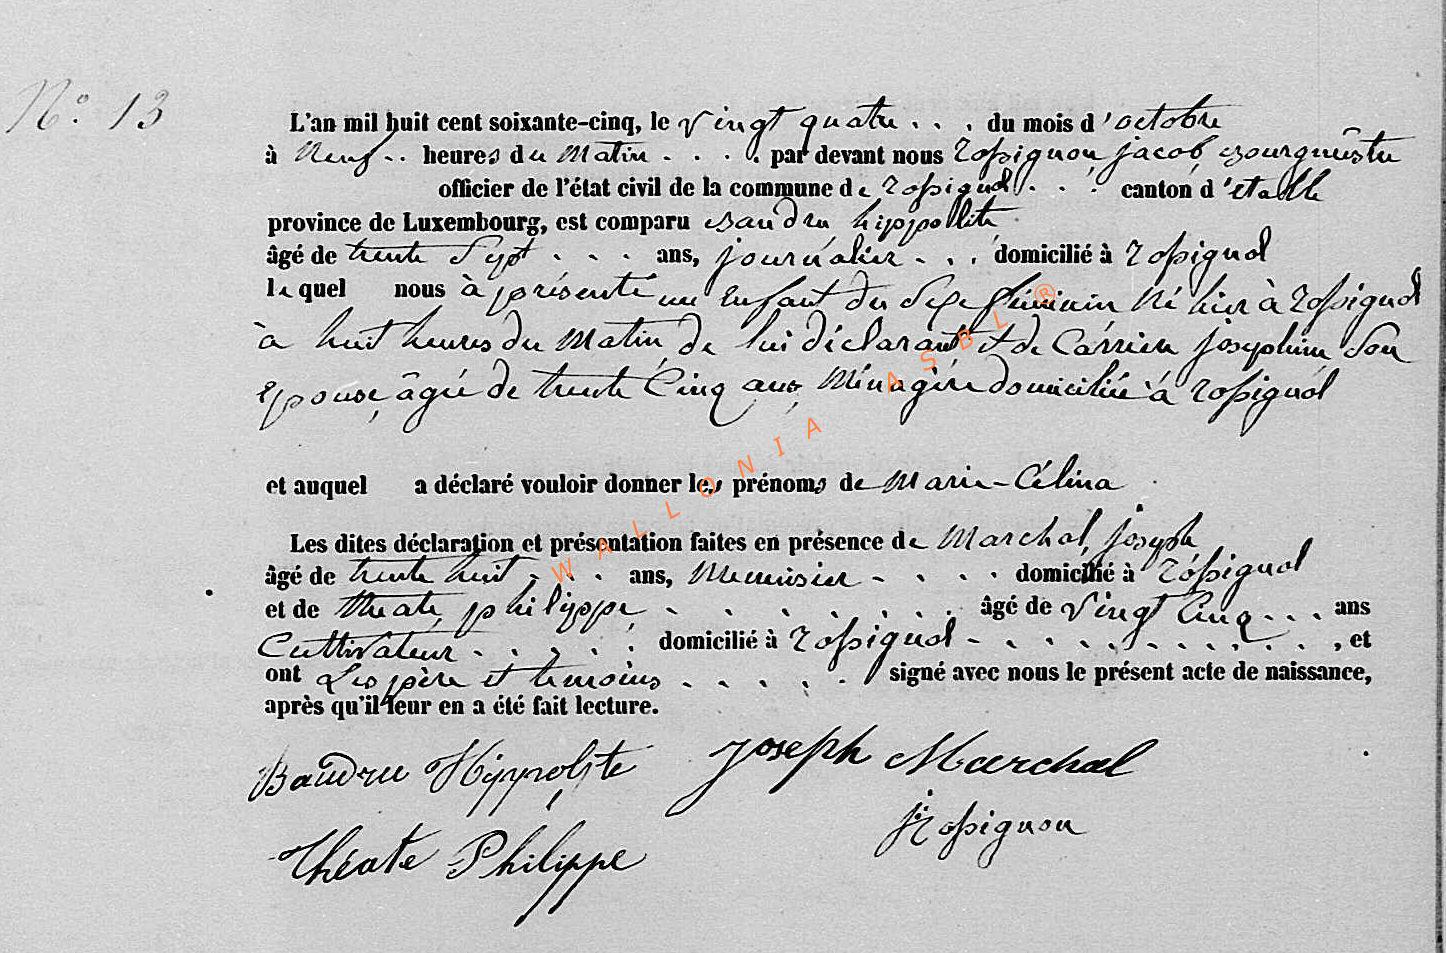 N° 13
L'an mil huit cent soixante-cinq, le vingt quatre . . . du mois d'octobre
à neuf .. heures du matin . . . . par devant nous Rossignon jacob, Bourguestre
officier de l'état civil de la commune de rossignol . . . canton d'etalle
province de Luxembourg, est comparu Baudru hippollite
âgé de trente Sept . . . ans, journalier . . . domicilié à rossignol
lequel nous à présenté un enfant du Sexe féminin Né hier à rossignol
à huit heures du Matin, de lui déclarant et de Carrier josephine Son
épouse, âgée de trente Cinq ans, Ménagère domiciliée à rossignol
et auquel a déclaré vouloir donner les prénoms de Marie-Célina
Les dites déclaration et présentation faites en présence de Marchal, joseph
âgé de trente huit . . . ans, Menuisier . . . . domicilié à rossignol
et de theate, philippe, . . . . . . . . âgé de vingt Cinq . . . ans
Cultivateur . . . . . domicilié à rossignol . . . . . . . . . . , et
ont Les père et temoins . . . . . signé avec nous le présent acte de naissance,
après qu'il leur en a été fait lecture.
Baudru Hippolyte Joseph Marchal
J Rossignon
Théate Philippe
WALLONIA ASBL ®